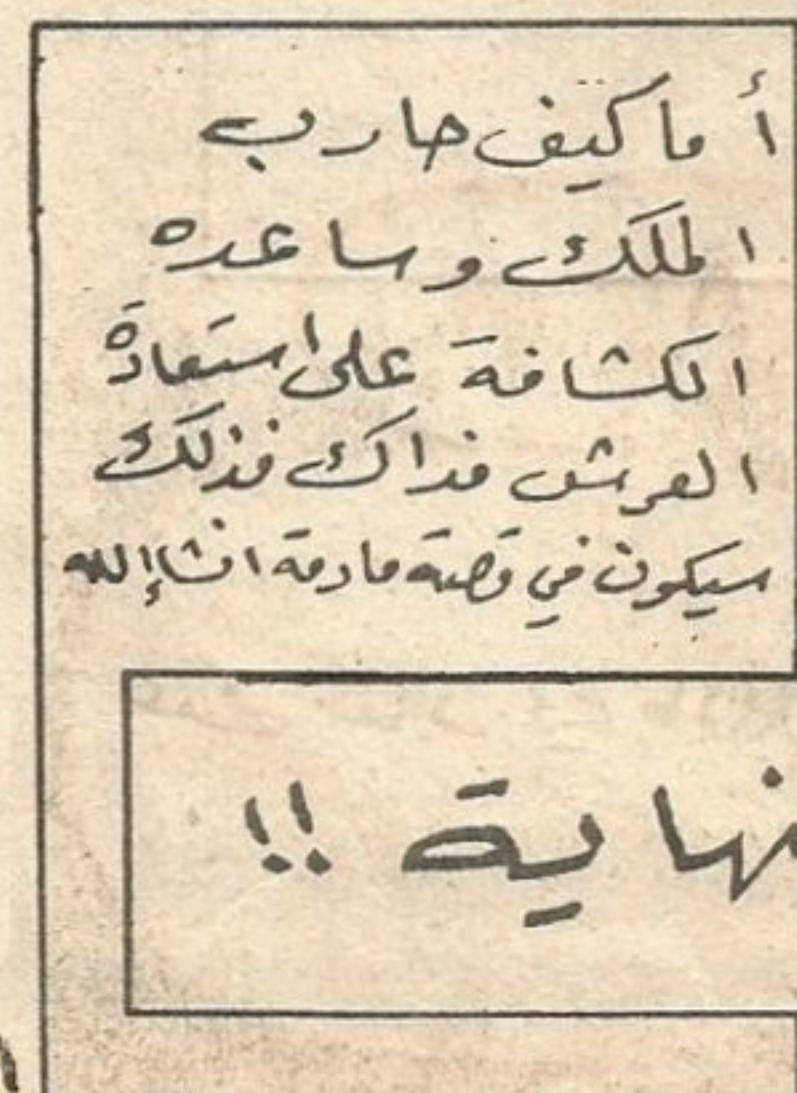 أما كيف حارب
الملك وساعده
الكشافة على استعادة
العرش فذاك فذلك
سيكون في قصة قادمة انشاإلله
نهاية !!